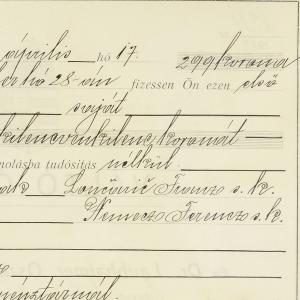 április hó 17. 299 korona
hó 28-án fizessen Ön ezen első
saját
kilencvenkilenc koronát
nolásba tudósítás nélkül.
ak Lončarić Franz s. k.
Nemecz Ferencz s. k.
pénztárnál